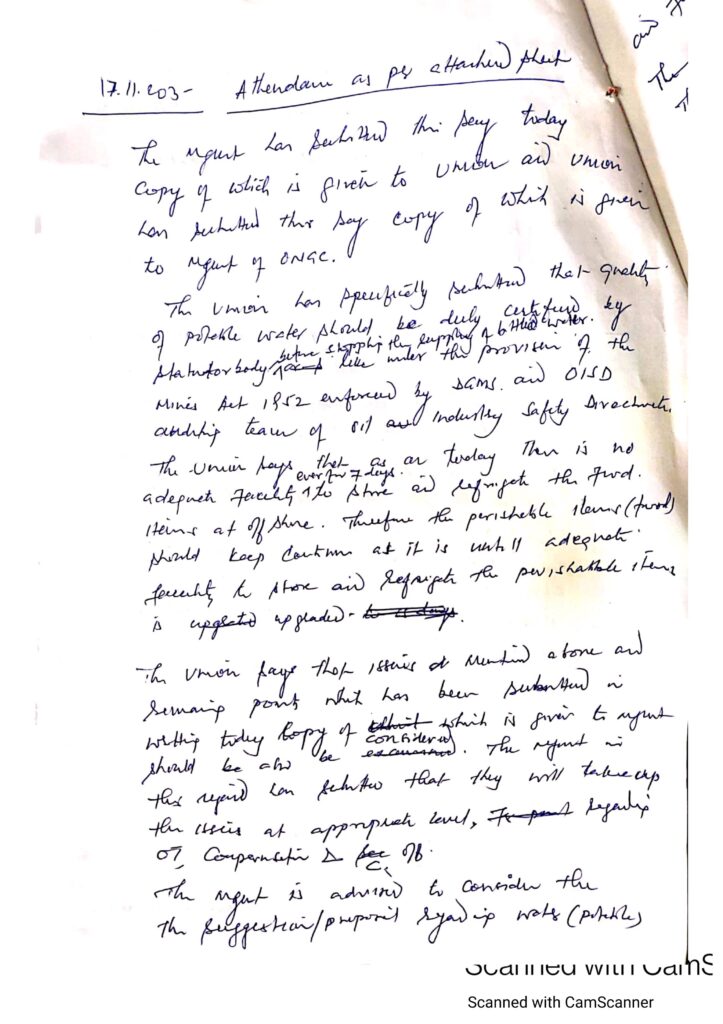 and
The
17.11.203- Attendance as per attached sheet
The mgmt has submitted their say today
Copy of which is given to Union and Union
has submitted their say copy of which is given
to mgmt of ONGC.
The Union has specifically submitted that quality
of potable water should be duly certified by
before stopping the supplying of bottled water.
Statutory body like under the provision of the
Mines Act 1952 enforced by DGMS and OISD
auditing team of oil and Industry Safety Directorate.
The Union says that as on today There is no
ever for 7 days.
adequate facility to store and refrigate the food
items at off shore. Therefore the perishable items (food)
should keep continue as it is untill adequate
facility to store and refrigate the perishable items
is upgraded.
The Union says that issues mentioned above and
remaining points which has been submitted in
writting today Copy of which is given to mgmt
should be also be considered. The mgmt in
this regard has submitted that they will take up
the issues at appropriate level, regarding
OT, Compensatin & C. Off.
The mgmt is advised to consider the
the suggestion/proposal regarding water (potable)
Scanned with CamS
Scanned with CamScanner